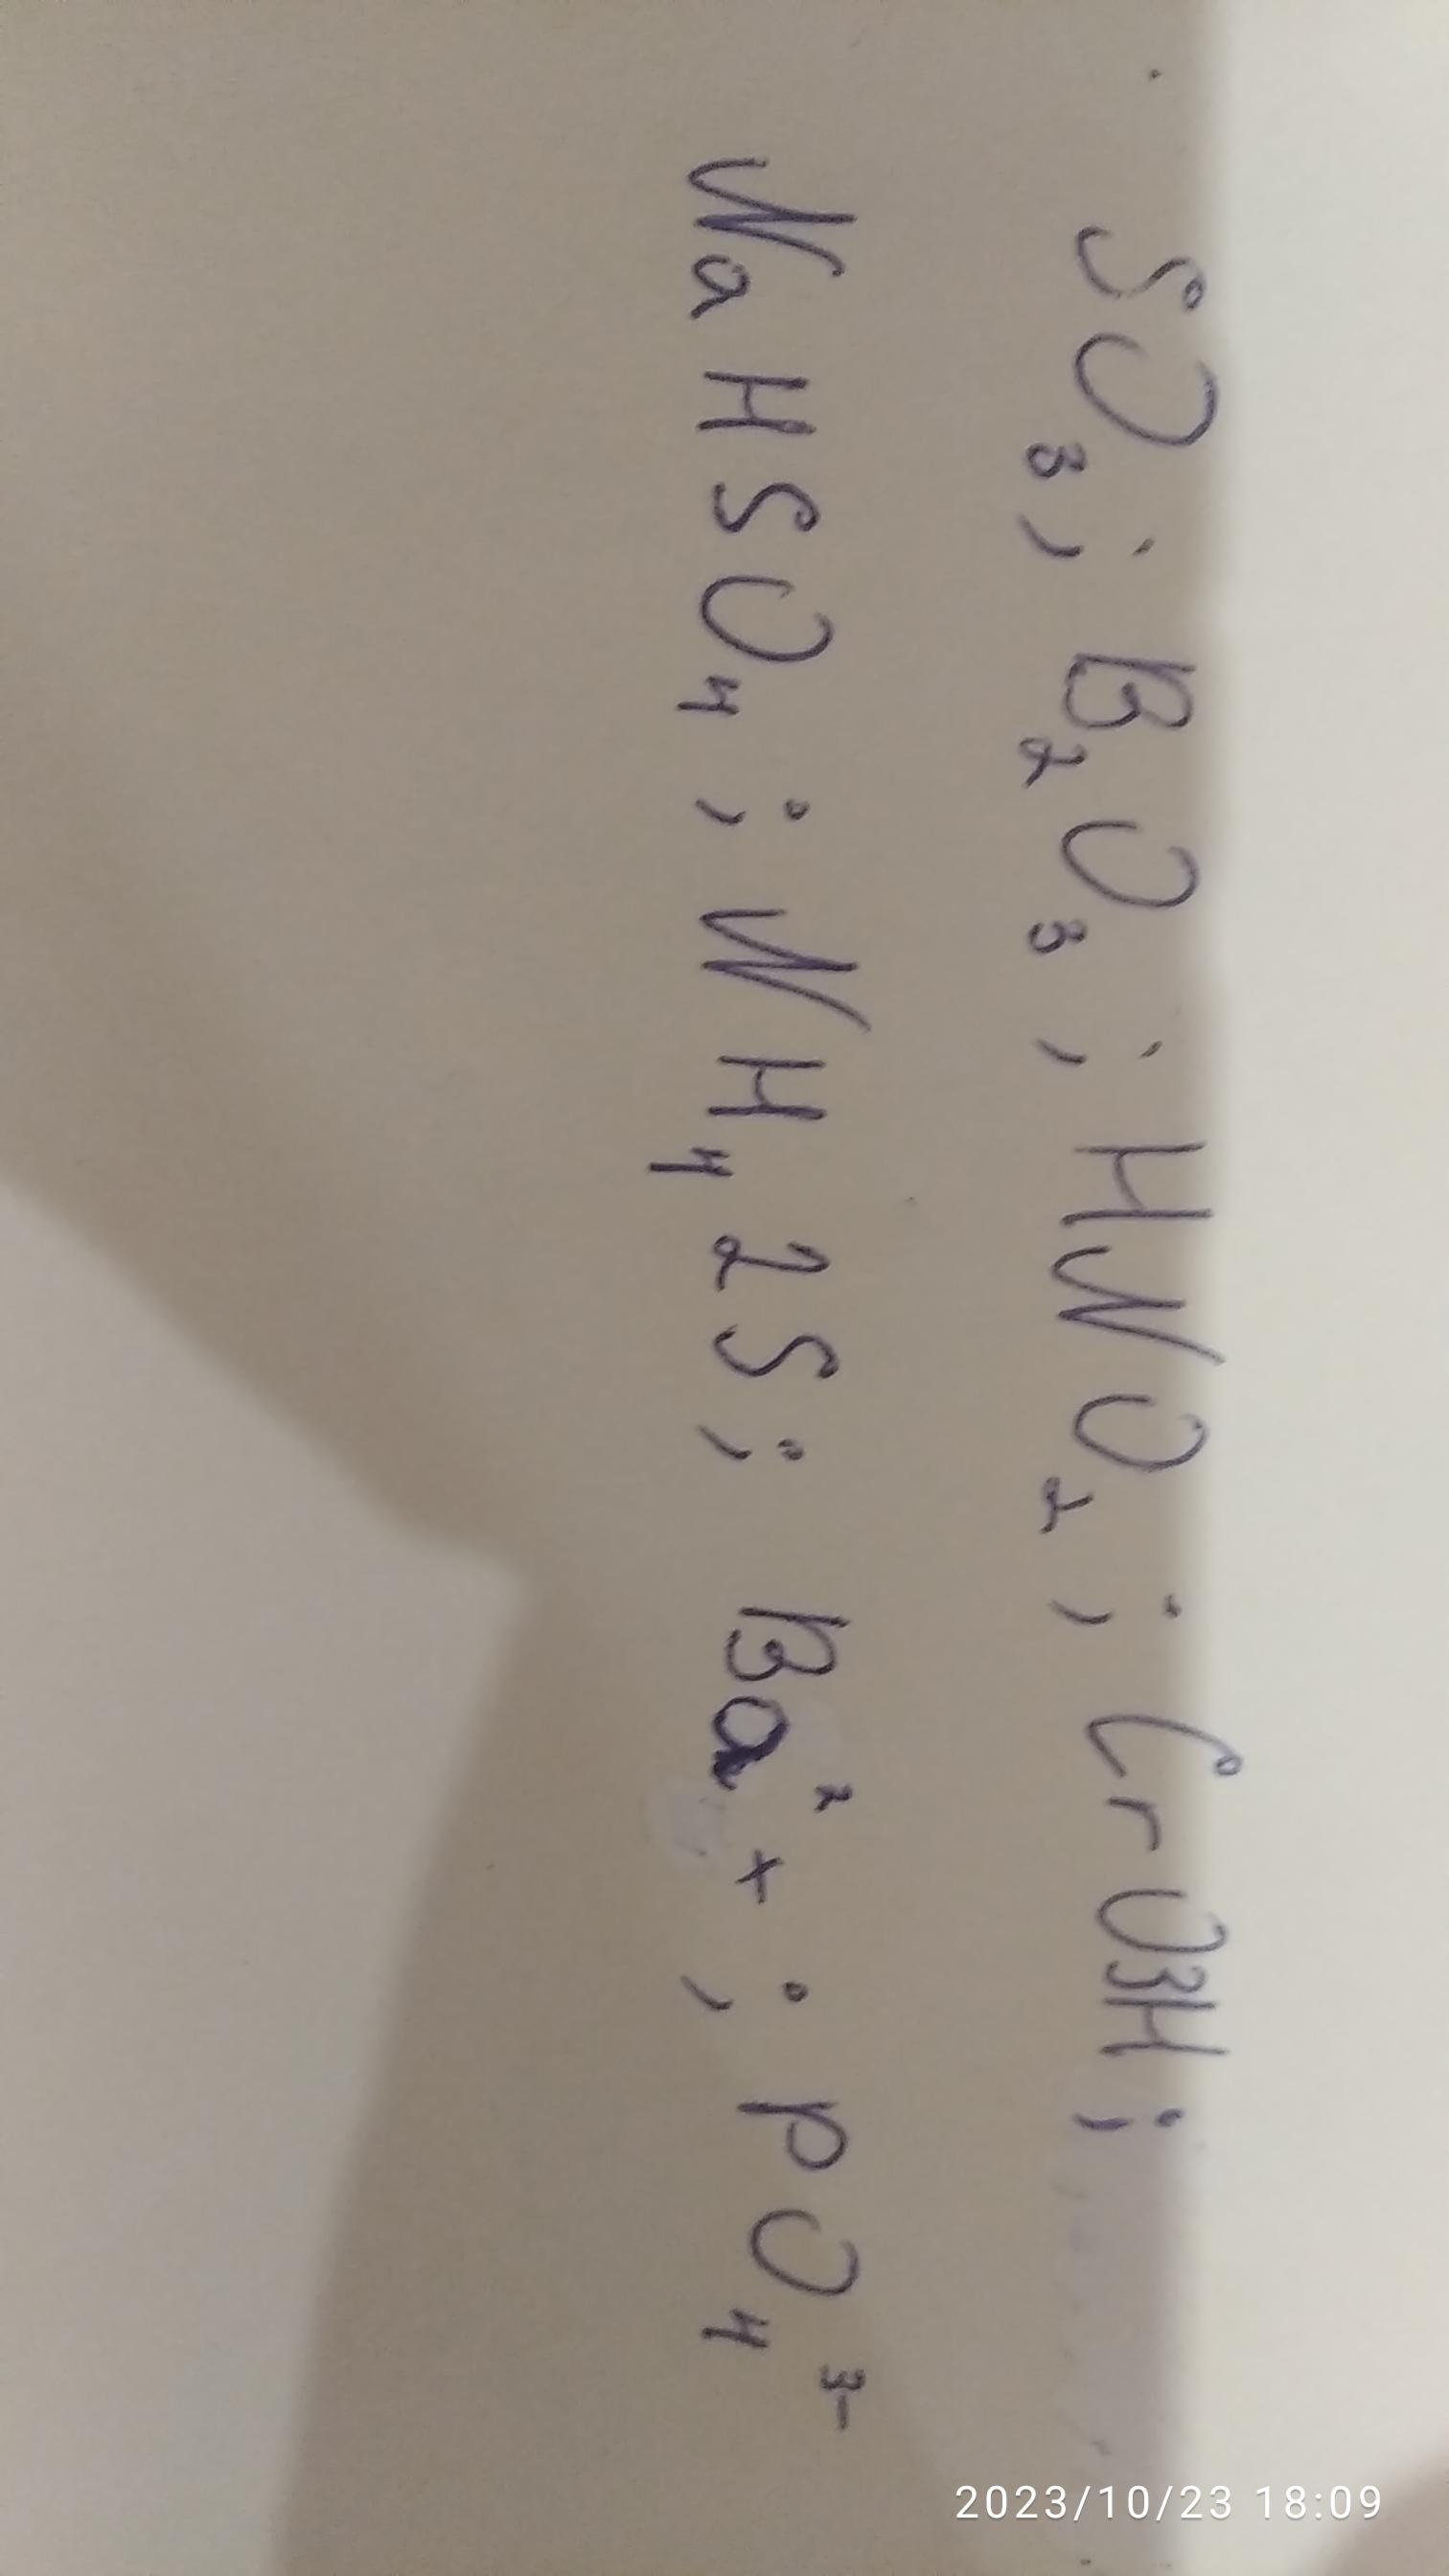 SO₃; B₂O₃; HNO₂; CrO3H;
NaHSO₄; NH₄2S; Ba²+; PO₄³⁻
2023/10/23 18:09